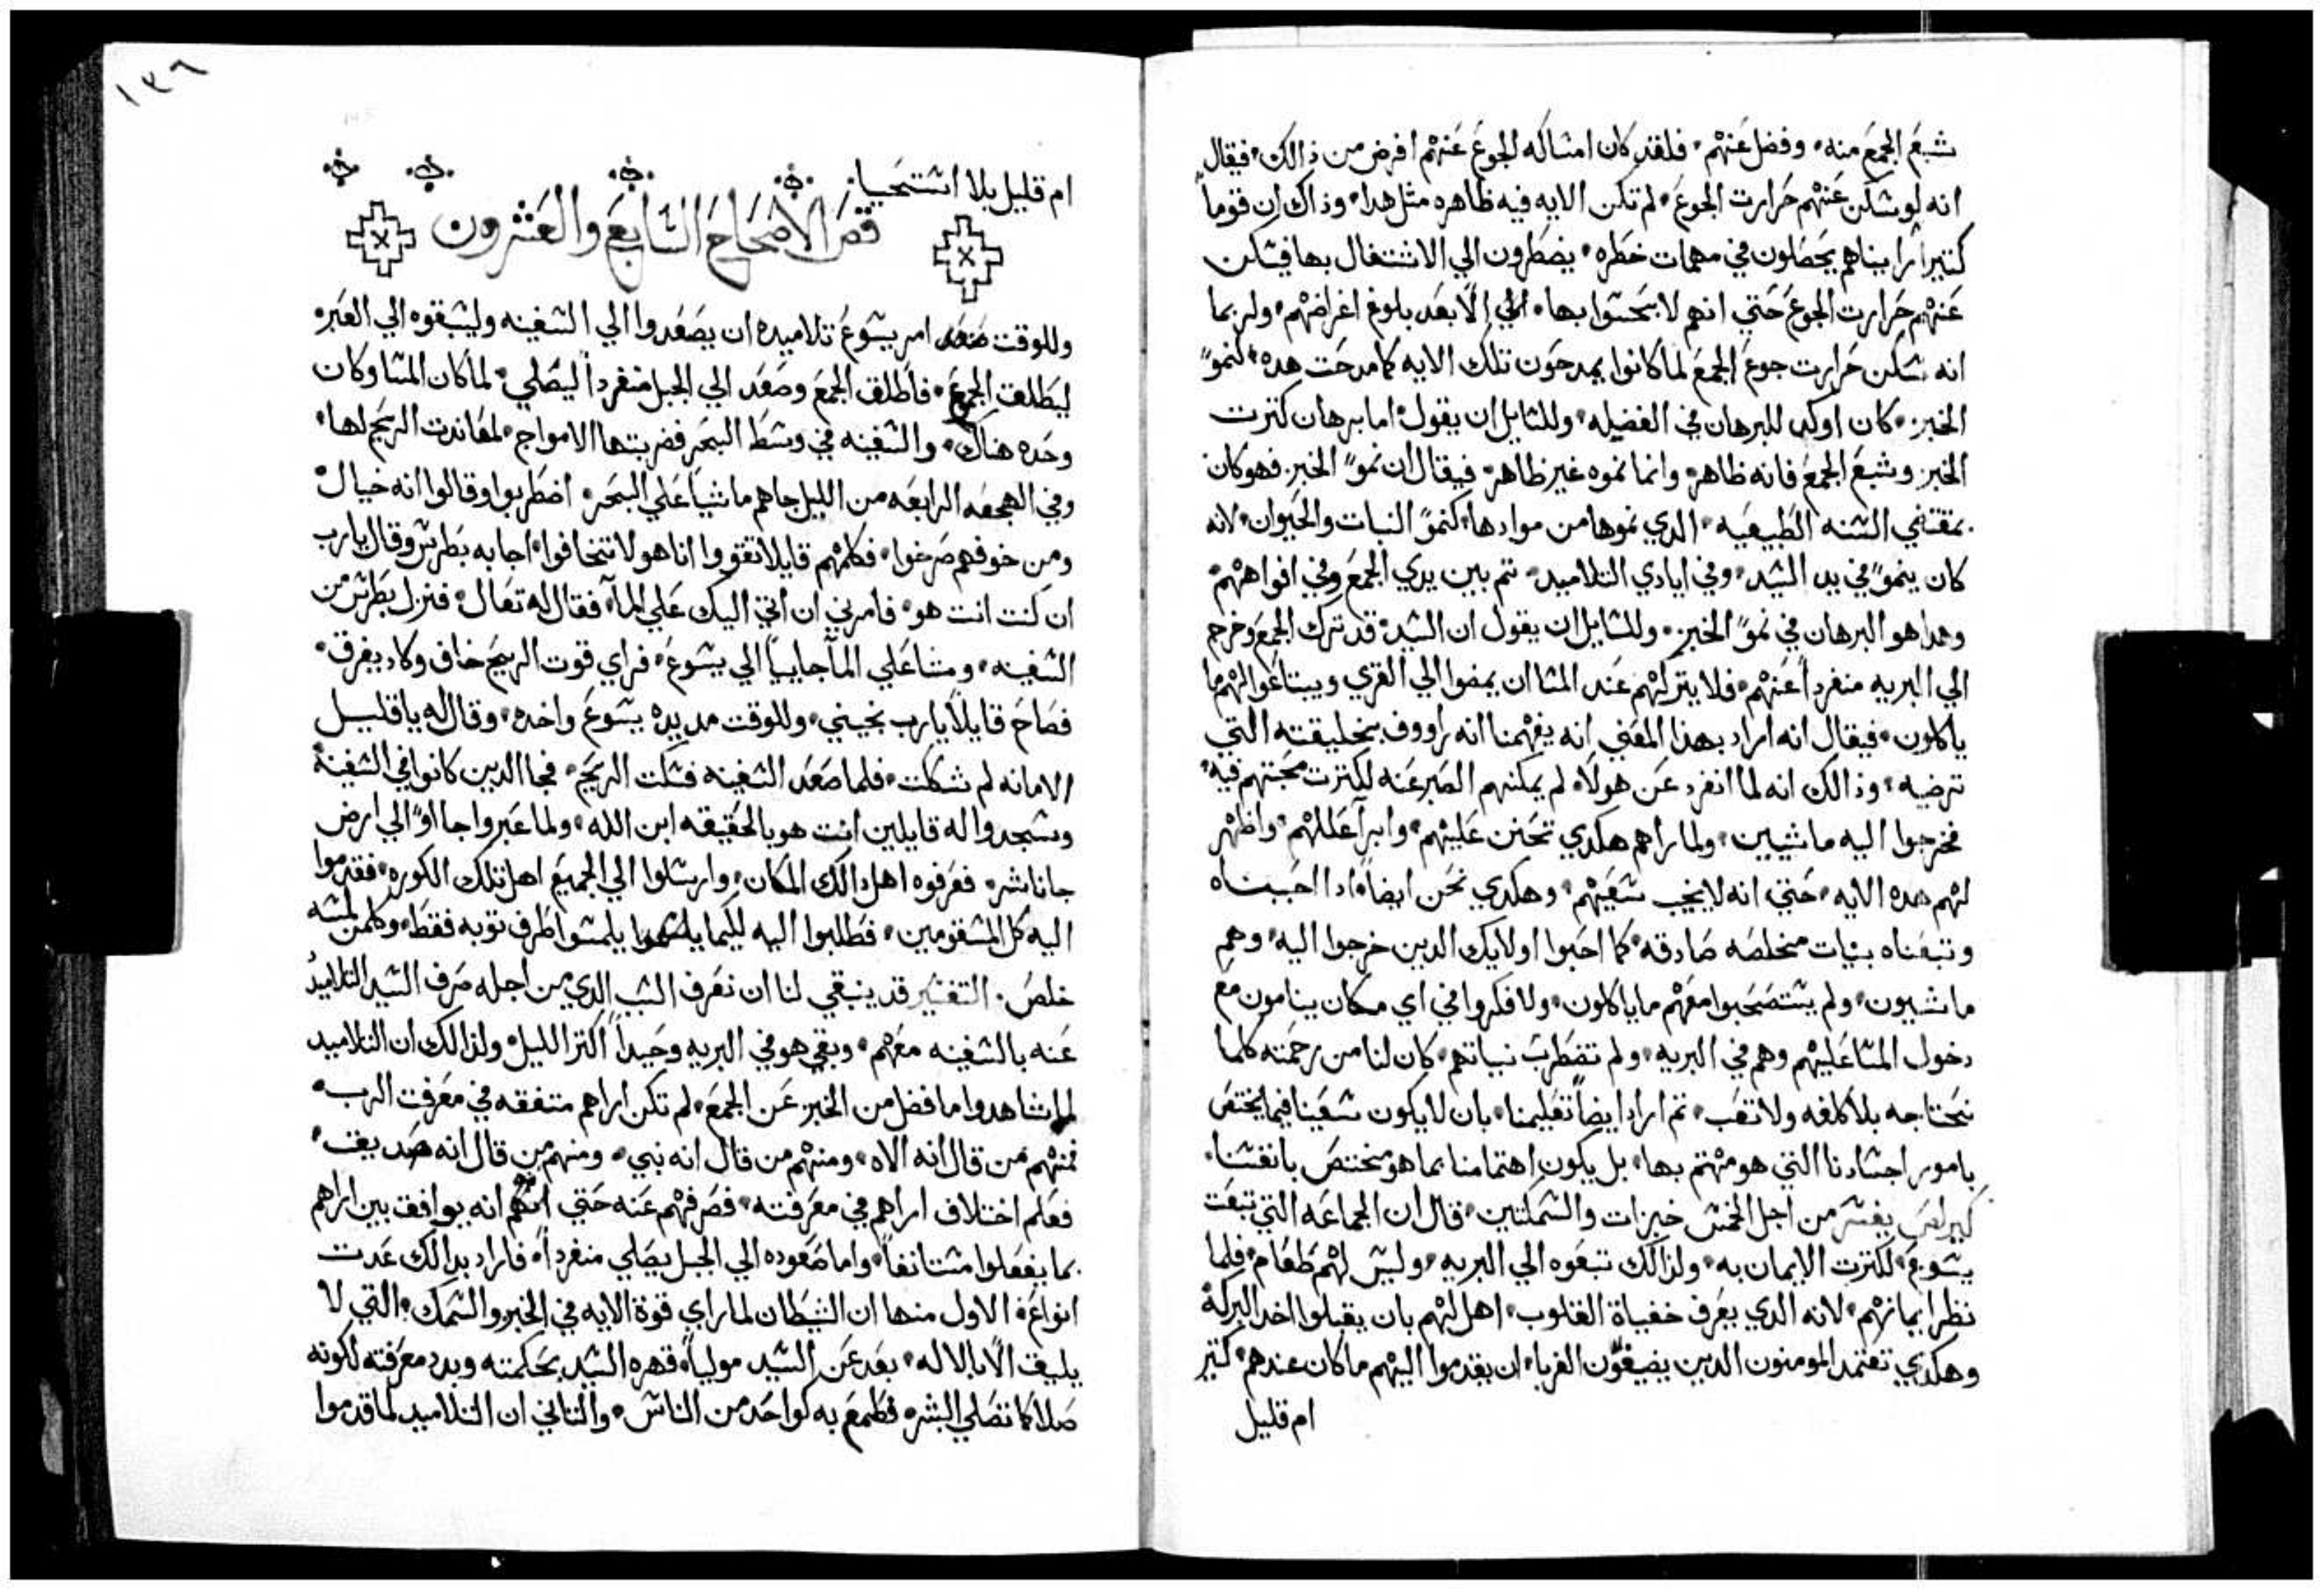 شبع الجمع منه، وفضل عنهم، فلقد كان امساكه الجوع عنهم افرض من ذالك، فيقال
انه لو سكن عنهم حرارت الجوع، لم تكن الايه فيه ظاهره مثل هدا، وذاك ان قوماً
كتيراً راىناهم يحصلون في مهمات خطره، يضطرون الي الاشتغال بها فيسكن
عنهم حرارت الجوع حتي انهم لا يحسوا بها، الي الّا بعد بلوغ اغراضهم، ولربما
انه سكن حرارت جوع الجمع لما كانوا يمدحون تلك الايه كما مدحت هده، كنموّ
الخبز، كان اوكد للبرهان في الفضيله، وللسايل ان يقول، اما برهان كترت
الخبز وشبع الجمع فانه ظاهر، وانما نموه غير ظاهر، فيقال ان نموّ الخبز فهو كان
بمقتضي السنه الطبيعيه، الدي نموها من موادها، كنموّ النبات والحيوان، لانه
كان ينموّ في يد السيد، وفي ايادي التلاميد، تم بين يدي الجمع وفي افواههم،
وهدا هو البرهان في نموّ الخبز، وللسايل ان يقول ان السيد، قد ترك الجمع وخرج
الي البريه منفرداً عنهم، فلا يتركهم عند المسا ان يمضوا الي القري ويبتاعوا لهم ما
ياكلون، فيقال انه اراد بهدا المعني انه يفهمنا انه رااووف بخليقته التي
ترضيه، وذالك انه لما انفرد عن هولاء، لم يمكنهم الصبر عنه لكترت محبتهم فيه،
فخرجوا اليه ماشيين، ولما راهم هكدي تحنن عليهم، وابرآ عللهم، واظهر
لهم هده الايه، حتي انه لا يخيب سعيهم، وهكدي نحن ايضاً، ادا احببناه
وتبعناه بنيات مخلصه صادقه، كما احبوا اولايك الدين خرجوا اليه، وهم
ماشيون، ولم يستصحبوا معهم ما ياكلون، ولا فكروا في اي مكان ينامون مع
دخول المسا عليهم وهم في البريه، ولم تضطرب نياتهم، كان لنا من رحمته كلما
نحتاجه بلا كلفه ولا تعب، تم اراد ايضاً تعليمنا، بان لا يكون سعينا فيما يختص
بامور اجسادنا التي هو مهتم بها، بل يكون اهتمامنا بما هو مختص بانفسنا،
كيرلص يفسر من اجل الخمس خبزات والسمكتين، قال ان الجماعه التي تبعت
يسوع، لكترت الايمان به، ولدالك تبعوه الي البريه، وليس لهم طعام، فلما
نظر ايمانهم، لانه الدي يعرف خفياة القلوب، اهل لهم بان يقبلوا اخد البركة
وهكدي تعتمد المومنون الدين يضيفون الغربا، ان يقدموا اليهم ما كان عندهم، كتير
ام قليل
١٣٦
ام قليل بلا استحيا
فص الاصحاح السابع والعشرون
وللوقت امر يسوع تلاميده ان يصعدوا الي السفينه وليسبقوه الي العبره
ليطلق الجمع، فاطلق الجمع وصعد الي الجبل منفرداً ليصلي، لما كان المسا وكان
وحده هناك، والسفينه في وسط البحر فضربتها الامواج، لمعاندت الريح لها،
وفي الهجعه الرابعه من الليل جاهم ماشياً علي البحر، اضطربوا وقالوا انه خيال
ومن خوفهم صرخوا، فكلمهم قايلا تقووا انا هو لا تخافوا، اجابه بطرس وقال يارب
ان كنت انت هو، فامرني ان اتي اليك علي المآ، فقال له تعال، فنزل بطرس من
السفينه، ومشا علي المآ جايياً الي يسوع، فراي قوت الريح خاف وكاد يغرق،
فصاح قايلاً يارب نجيني، وللوقت مد يده يسوع واخده، وقال له يا قليل
الامانه لم شككت، فلما صعد السفينه فسكت الريح، فجا الدين كانوا في السفينة
وسجدوا له قايلين انت هو بالحقيقه ابن الله، ولما عبروا جااوّ الي ارض
جاناشر، فعرفوه اهل دالك المكان، وارسلوا الي الجميع اهل تلك الكوره، فقدموا
اليه كل المسقومين، فطلبوا اليه لكيما يلمسوا طرف توبه فقط، وكلمن لمسه
خلص، التفسير قد ينبغي لنا ان نعرف السبب الدي من اجله صرف السيد التلاميد
عنه بالسفينه معهم، وبقي هو في البريه وحيداً اكتر الليل، ولدالك ان التلاميد
لما شاهدوا ما فضل من الخبز عن الجمع، لم تكن اراهم متفقه في معرفت الرب،
فمنهم من قال انه الاه، ومنهم من قال انه نبي، ومنهم من قال انه صديق،
فعلم اختلاف اراهم في معرفته، فصرفهم عنه حتي انه يوافق بين اراهم
بما يفعلوا مستانفاً، واما صعوده الي الجبل يصلي منفرداً، فاراد بدالك عدت
انواع، الاول منها ان الشيطان لما راي قوة الايه في الخبز والسمك، التي لا
يليق الّا بالاله، بعد عن السيد مولياً، قهره السيد بحكمته وبدد معرفته لكونه
صلا كما تصلي البشر، فطمع به كواحد من الناس، والتاني ان التلاميد لما قدموا